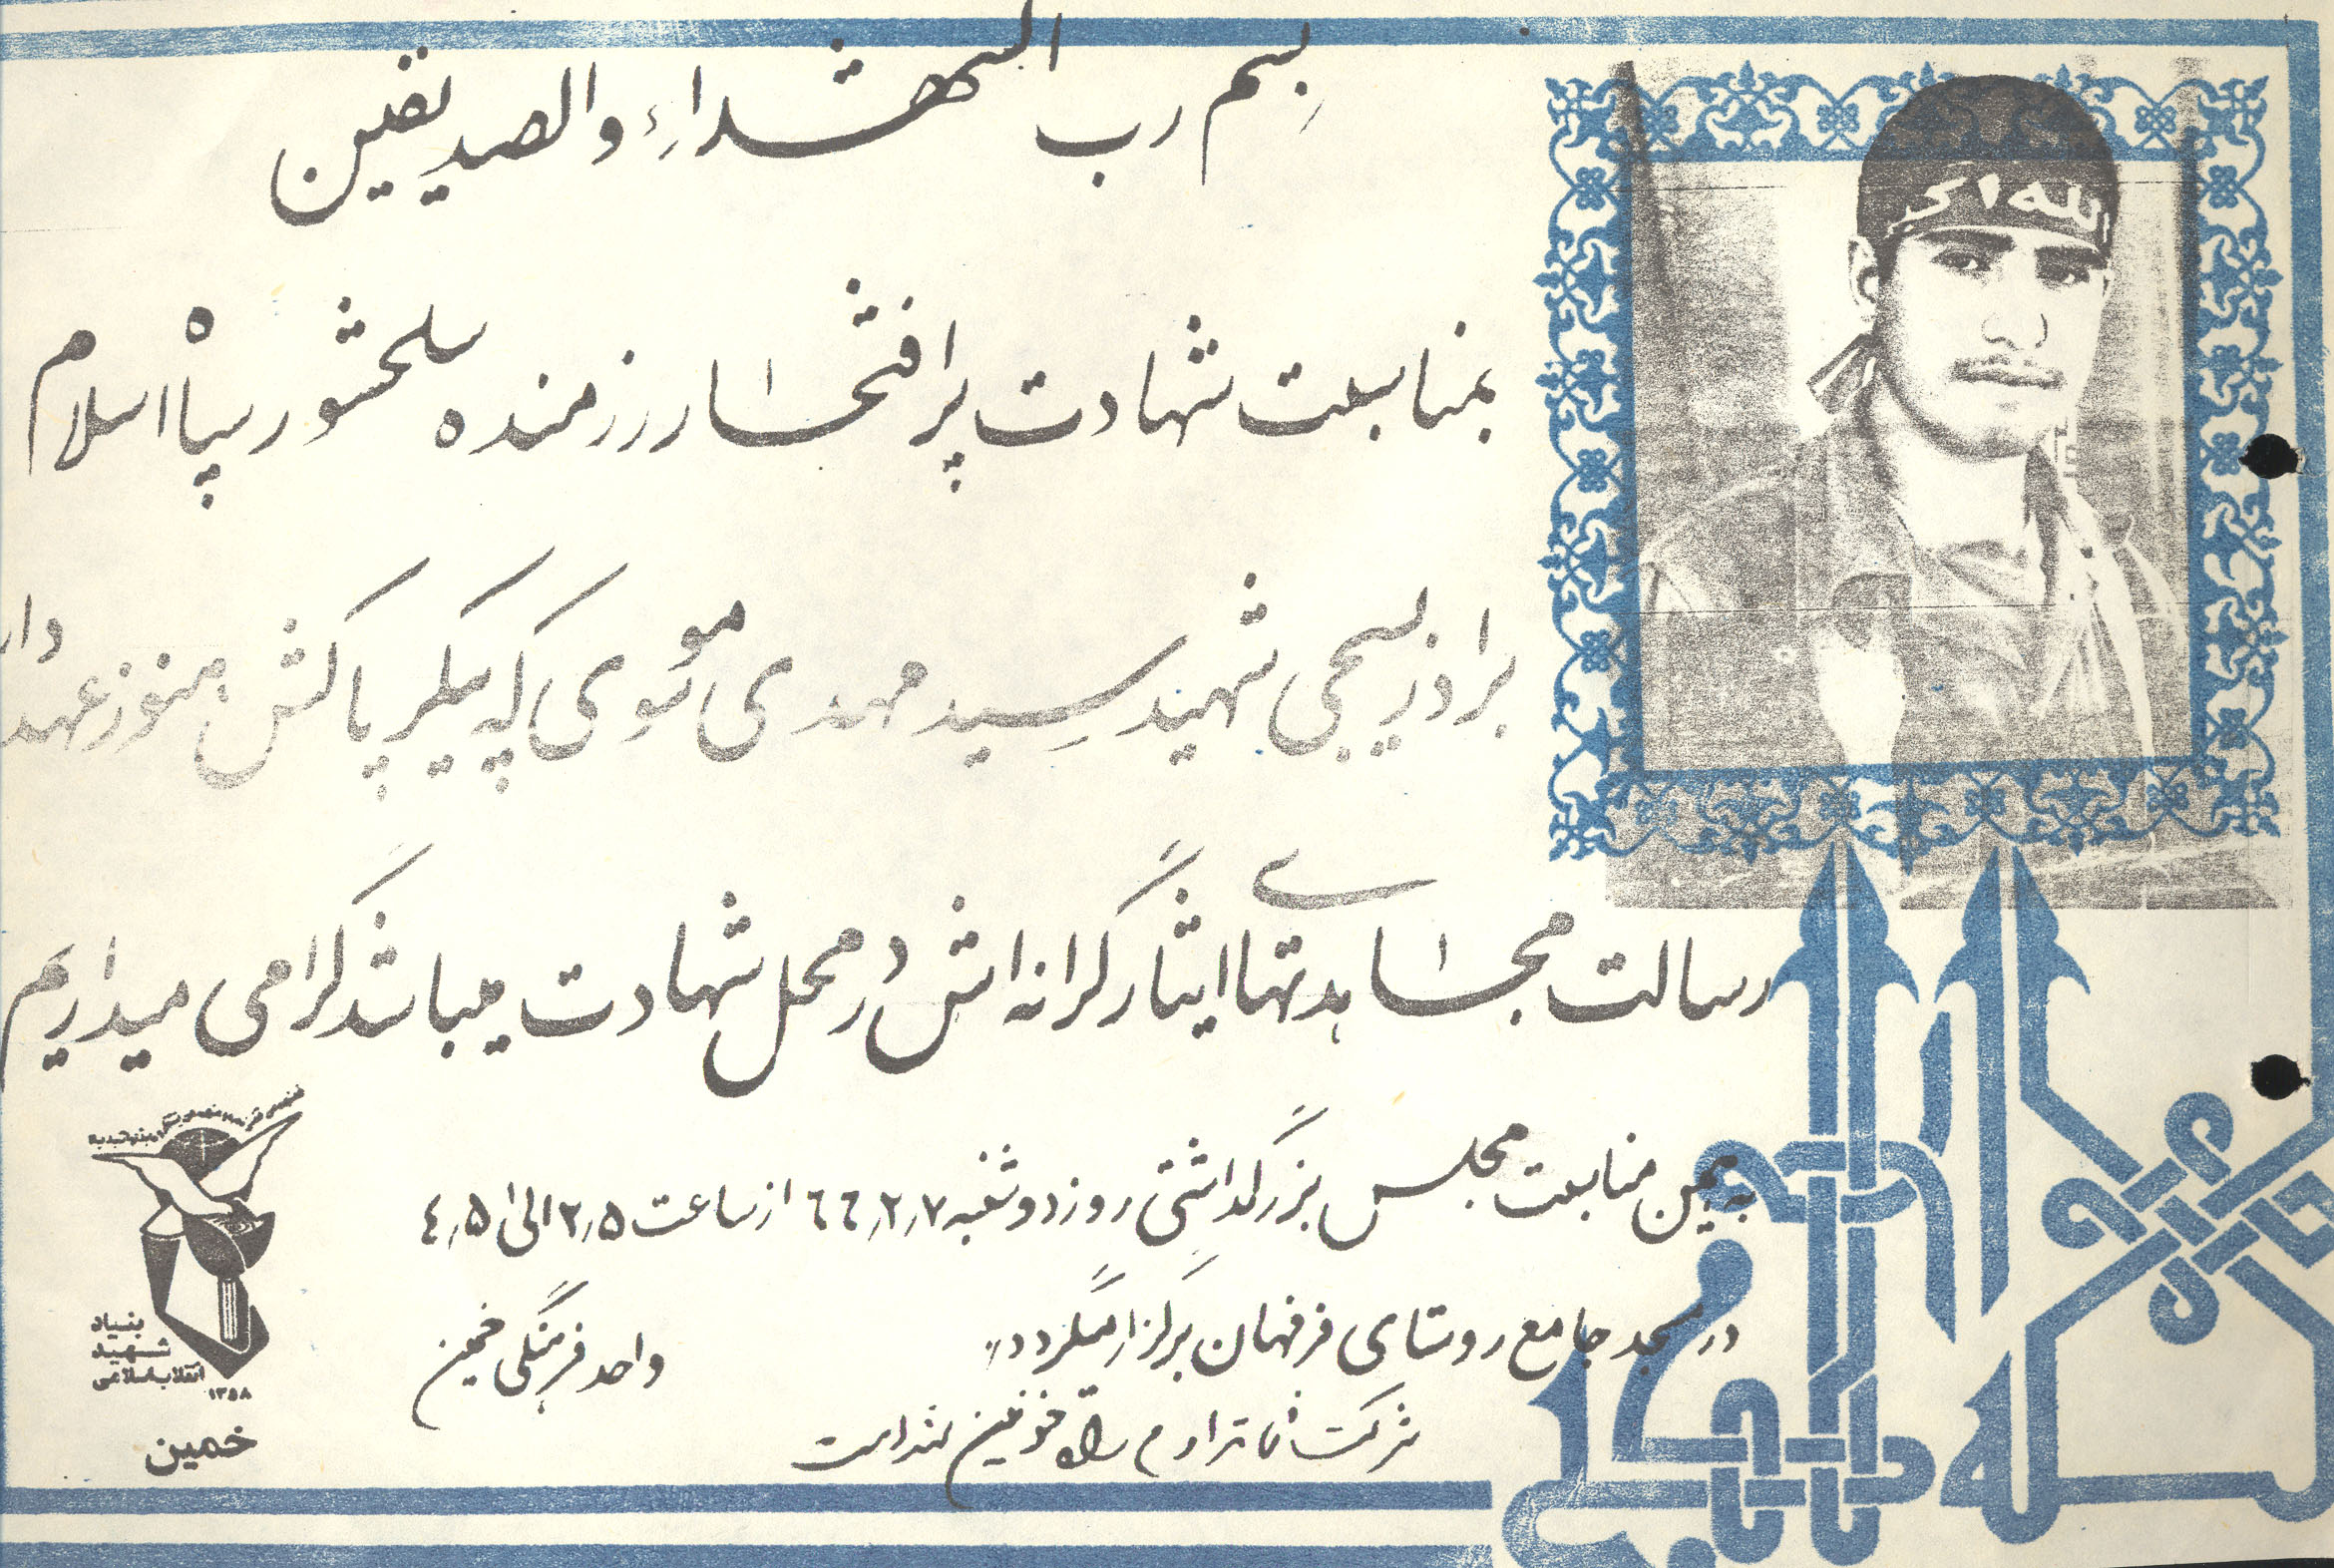 بسم رب الشهداء و الصدیقین
بمناسبت شهادت پرافتخار رزمنده سلحشور سپاه اسلام
برادر بسیجی شهید سید مهدی موسوی که پیکر پاکش هنوز عهده دار
رسالت مجاهدتهای ایثارگرانه اش در محل شهادت میباشد گرامی میداریم
به همین مناسبت مجلس بزرگداشتی روز دوشنبه ٦٦٫٢٫٧ از ساعت ٢٫٥ الی ٤٫٥
در مسجد جامع روستای فرفهان برگزار میگردد
شرکت شما تداوم راه خونین شهداست
واحد فرهنگی خمین
بنیاد
شهید
انقلاب اسلامی
١٣٥٨
خمین
الله اکبر